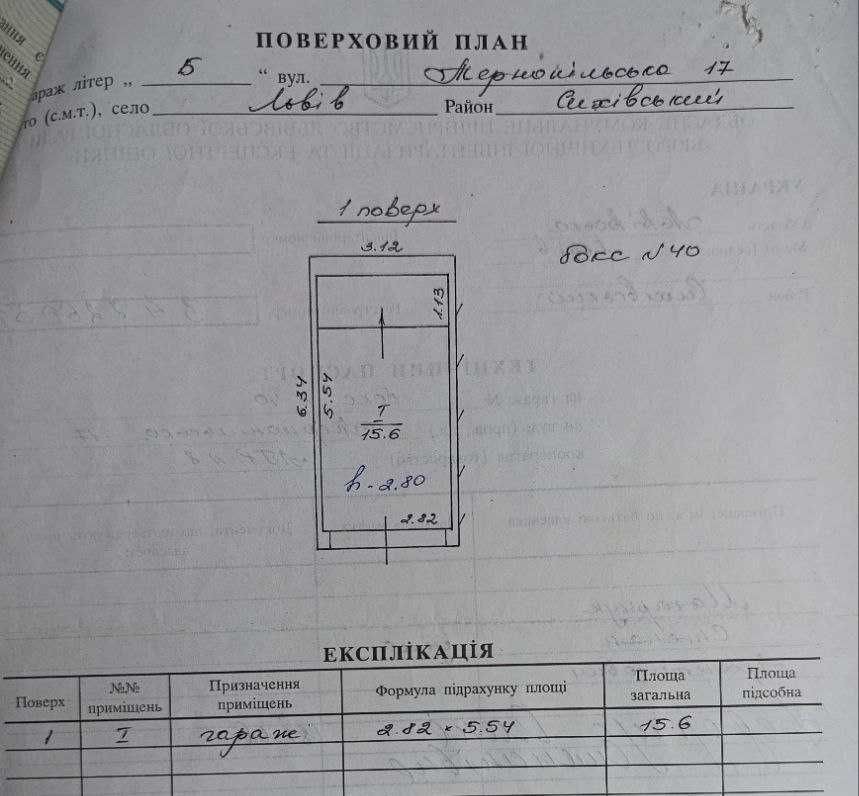 ПОВЕРХОВИЙ ПЛАН
араж літер „ Б “ вул. Тернопільська 17
то (с.м.т.), село Львів Район Сихівський
1 поверх
3.12
бокс №40
1.13
6.34
5.54
I
15.6
h - 2.80
2.82
ЕКСПЛІКАЦІЯ
Поверх №№ приміщень Призначення приміщень Формула підрахунку площі Площа загальна Площа підсобна
1 I гараж 2.82 × 5.54 15.6